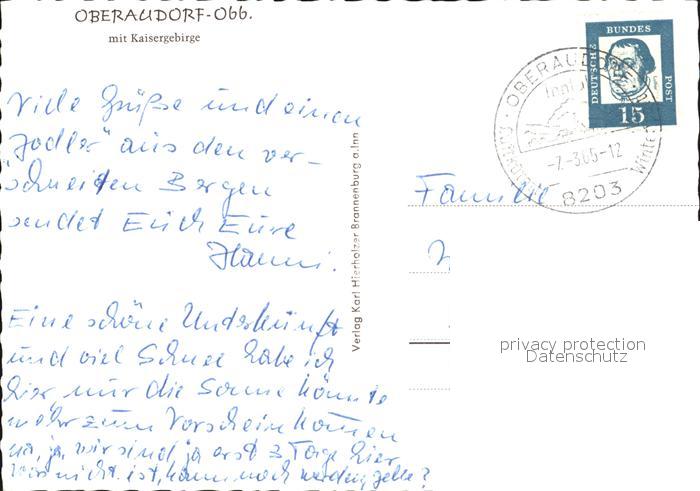 OBERAUDORF-Obb.
mit Kaisergebirge
Viele Grüße und einen
"Jodler" aus den ver-
schneiten Bergen
sendet Euch Eure
Hanni.
Eine schöne Unterkunft
und viel Schnee habe ich
hier, nur die Sonne könnte
mehr zum Vorschein kommen
na, ja, wir sind ja erst 3 Tage hier,
was nicht ist, kann noch werden, gelle?
Verlag Karl Hierholzer Brannenburg a.Inn
DEUTSCHE BUNDES POST
15
OBERAUDORF
-7.-3.65-12
8203
Familie
privacy protection
Datenschutz